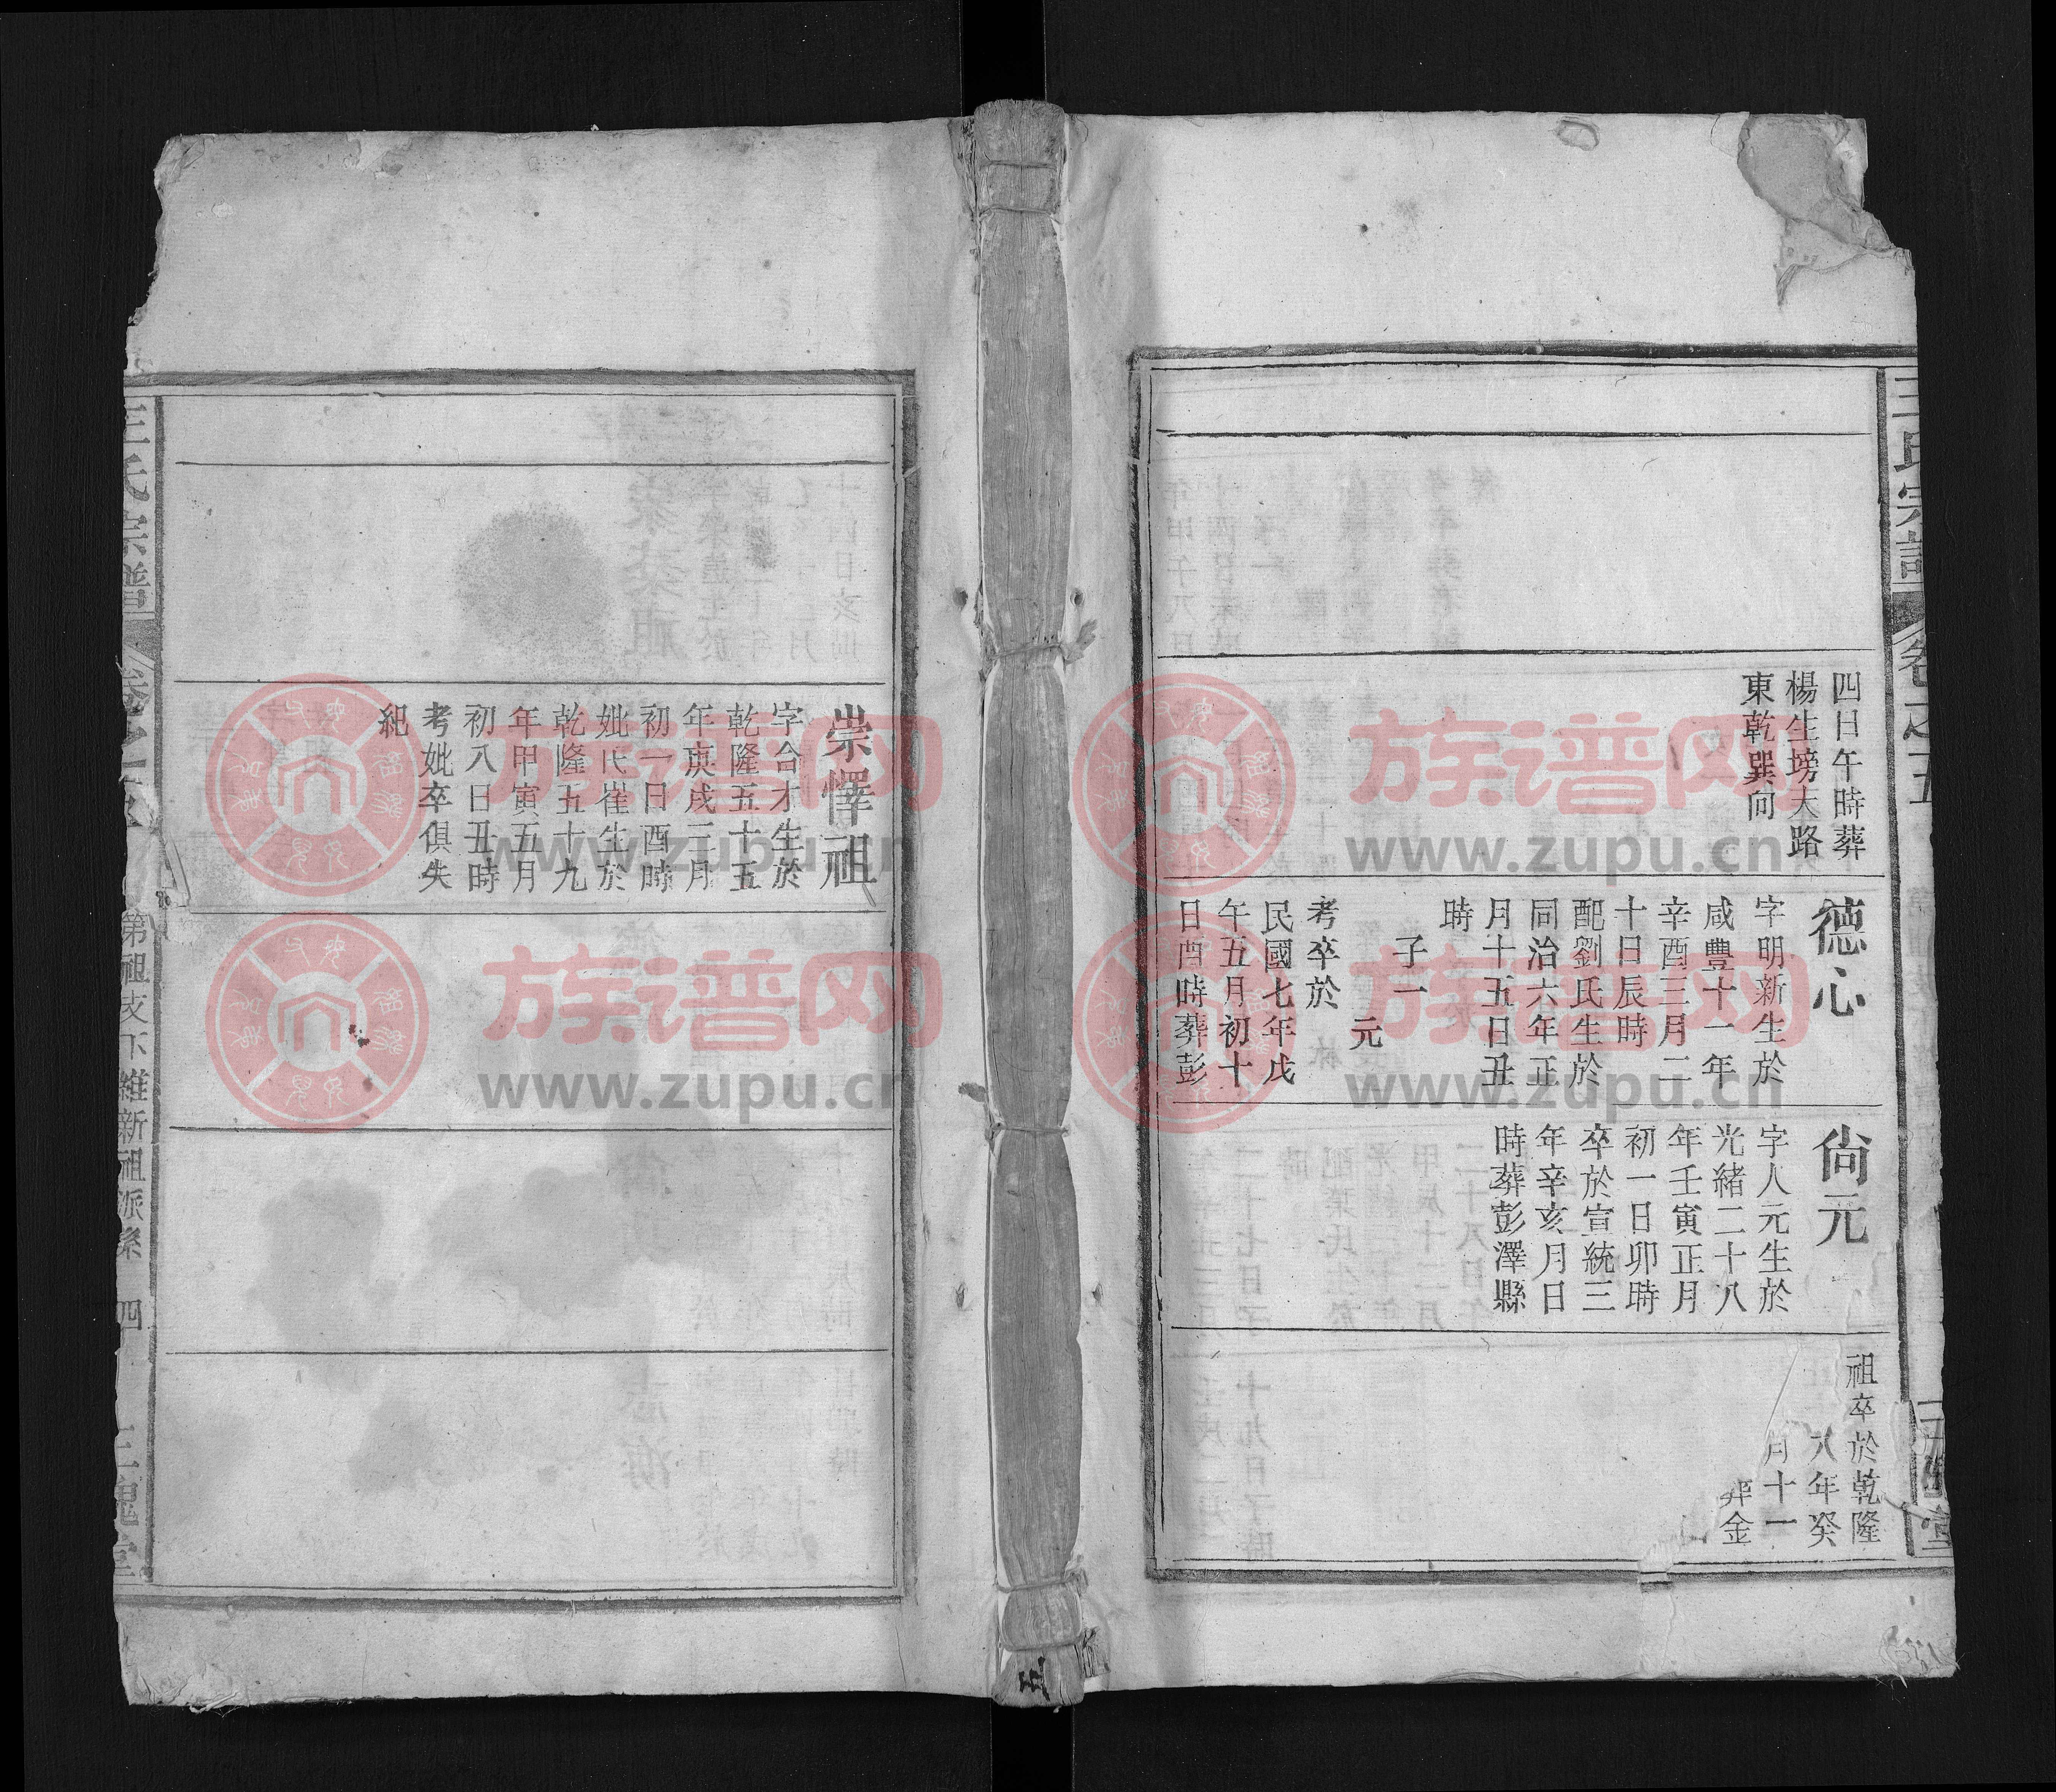 王氏宗譜
卷之五
四日午時葬
楊生塝大路
東乾巽向
德心
字明新生於
咸豐十一年
辛酉三月二
十日辰時
配劉氏生於
同治六年正
月十五日丑
時
子一
元
考卒於
民國七年戊
午五月初十
日酉時葬彭
尙元
字人元生於
光緒二十八
年壬寅正月
初一日卯時
卒於宣統三
年辛亥月日
時葬彭澤縣
祖卒於乾隆
八年癸
月十一
金
崇懌祖
字合才生於
乾隆五十五
年庚戌三月
初一日酉時
妣氏崔生於
乾隆五十九
年甲寅五月
初八日丑時
考妣卒俱失
紀
王氏宗譜
卷之五
第祖支下維新祖派系
四
三槐堂
族谱网
www.zupu.cn
族谱网
www.zupu.cn
族谱网
www.zupu.cn
族谱网
www.zupu.cn